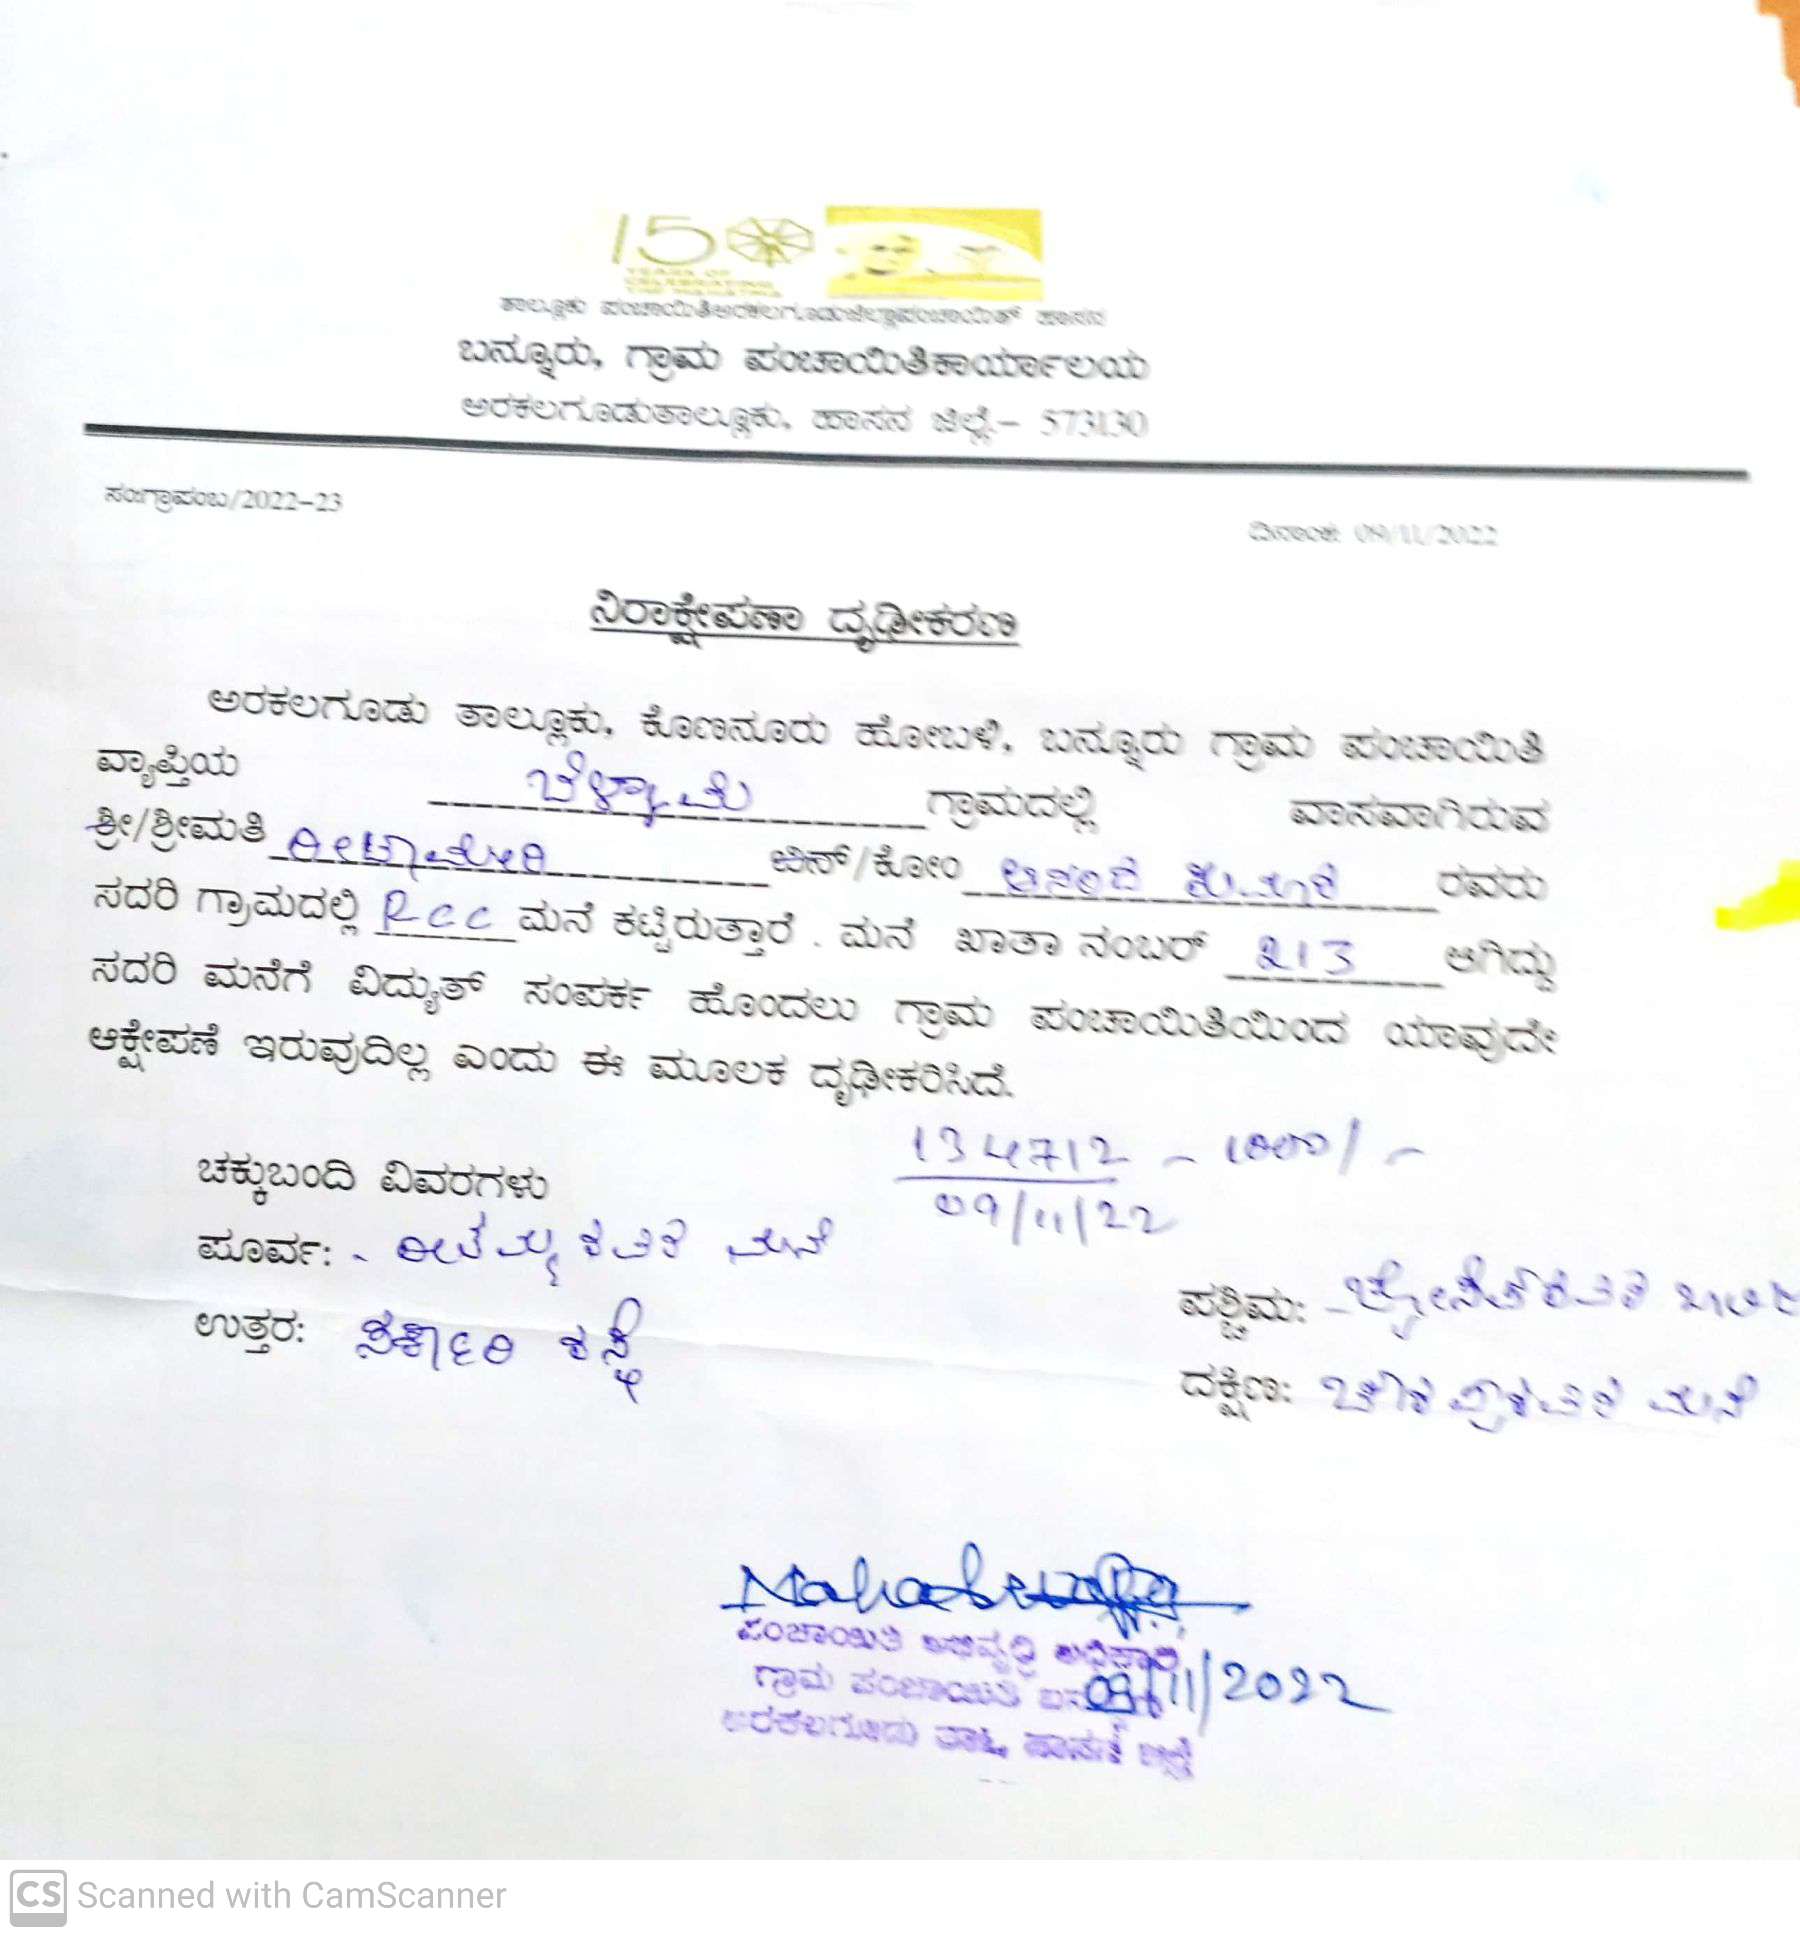 150
YEARS OF
CELEBRATING
THE MAHATMA
ತಾಲ್ಲೂಕು ಪಂಚಾಯಿತಿಅರಕಲಗೂಡುಜಿಲ್ಲಾಪಂಚಾಯಿತ್ ಹಾಸನ
ಬನ್ನೂರು, ಗ್ರಾಮ ಪಂಚಾಯಿತಿಕಾರ್ಯಾಲಯ
ಅರಕಲಗೂಡುತಾಲ್ಲೂಕು, ಹಾಸನ ಜಿಲ್ಲೆ.– 573130
ಸಂಗ್ರಾಪಂಬ/2022–23
ದಿನಾಂಕ: 09/11/2022
ನಿರಾಕ್ಷೇಪಣಾ ದೃಢೀಕರಣ
ಅರಕಲಗೂಡು ತಾಲ್ಲೂಕು, ಕೊಣನೂರು ಹೋಬಳಿ, ಬನ್ನೂರು ಗ್ರಾಮ ಪಂಚಾಯಿತಿ
ವ್ಯಾಪ್ತಿಯ ಗ್ರಾಮದಲ್ಲಿ ವಾಸವಾಗಿರುವ
ಶ್ರೀ/ಶ್ರೀಮತಿ ರೀಟಾಮೇರಿ ಬಿನ್/ಕೋಂ ಆನಂದ ಕುಮಾರ ರವರು
ಸದರಿ ಗ್ರಾಮದಲ್ಲಿ Rcc ಮನೆ ಕಟ್ಟಿರುತ್ತಾರೆ . ಮನೆ ಖಾತಾ ನಂಬರ್ 213 ಆಗಿದ್ದು
ಸದರಿ ಮನೆಗೆ ವಿದ್ಯುತ್ ಸಂಪರ್ಕ ಹೊಂದಲು ಗ್ರಾಮ ಪಂಚಾಯಿತಿಯಿಂದ ಯಾವುದೇ
ಆಕ್ಷೇಪಣೆ ಇರುವುದಿಲ್ಲ ಎಂದು ಈ ಮೂಲಕ ದೃಢೀಕರಿಸಿದೆ.
134712 – 1000/–
09/11/22
ಚಕ್ಕುಬಂದಿ ವಿವರಗಳು
ಪೂರ್ವ: ಮನೆ
ಪಶ್ಚಿಮ:
ಉತ್ತರ: ಸರ್ಕಾರಿ ರಸ್ತೆ
ದಕ್ಷಿಣ: ಮನೆ
ಪಂಚಾಯಿತಿ ಅಭಿವೃದ್ಧಿ ಅಧಿಕಾರಿ
ಗ್ರಾಮ ಪಂಚಾಯಿತಿ ಬನ್ನೂರು
09/11/2022
ಅರಕಲಗೂಡು ತಾ||, ಹಾಸನ ಜಿಲ್ಲೆ
CS Scanned with CamScanner